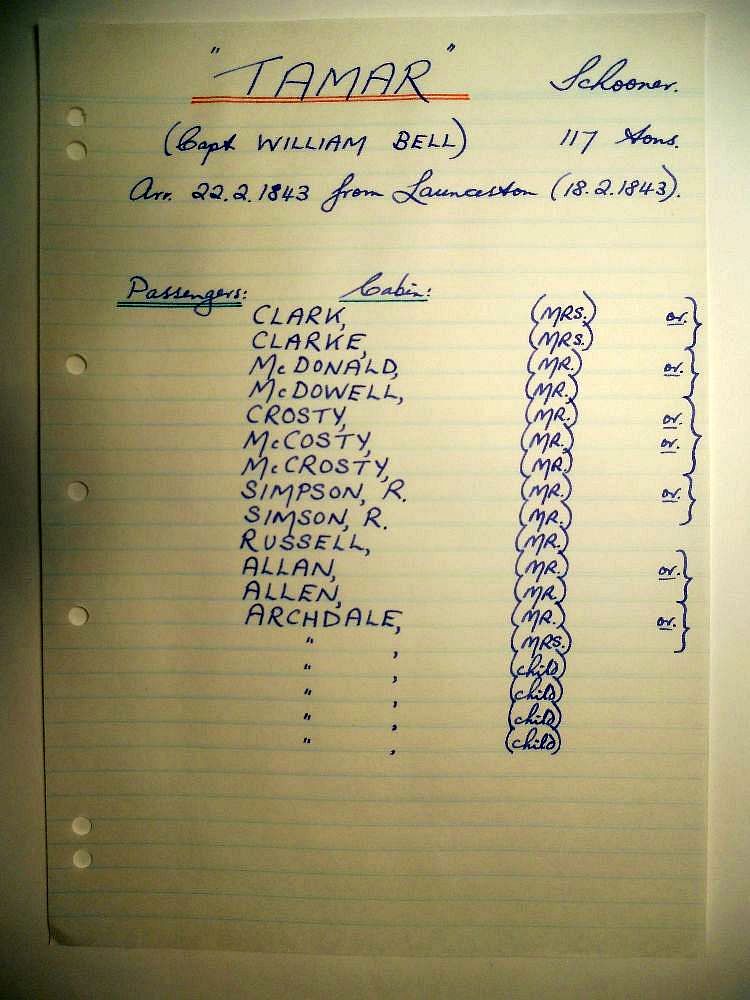 "TAMAR" Schooner.
(Capt WILLIAM BELL) 117 tons.
Arr. 22.2.1843 from Launceston (18.2.1843).
Passengers: Cabin:
CLARK, (MRS.) or.
CLARKE, (MRS.)
McDONALD, (MR.) or.
McDOWELL, (MR.)
CROSTY, (MR.) or.
McCOSTY, (MR.) or.
McCROSTY, (MR.)
SIMPSON, R. (MR.) or.
SIMSON, R. (MR.)
RUSSELL, (MR.)
ALLAN, (MR.) or.
ALLEN, (MR.)
ARCHDALE, (MR.) or.
" , (MRS.)
" , (child)
" , (child)
" , (child)
" , (child)